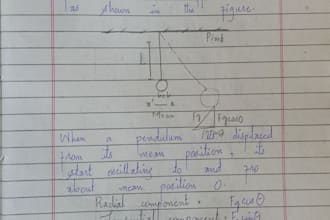 as shown in the figure
Pivot
l
x
Mean
Fgcosθ
When a pendulum is displaced
from its mean position, its
start oscillating to and fro
about mean position O.
Radial component = FgcosΘ
component = Fgsinθ